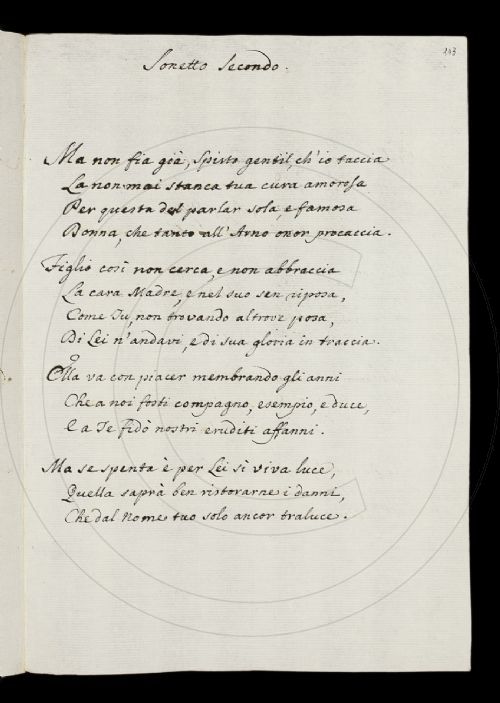 203
Sonetto Secondo.
Ma non fia già, Spirto gentil, ch'io taccia
La non mai stanca tua cura amorosa
Per questa del parlar sola, e famosa
Donna, che tanto all'Arno onor procaccia.
Figlio così non cerca, e non abbraccia
La cara Madre, e nel suo sen riposa,
Come Tu, non trovando altrove posa,
Di Lei n'andavi, e di sua gloria in traccia.
Olla va con piacer membrando gli anni
Che a noi fosti compagno, esempio, e duce,
E a Te fidò nostri eruditi affanni.
Ma se spenta è per Lei sì viva luce,
Quella saprà ben ristorarne i danni,
Che dal Nome tuo solo ancor traluce.